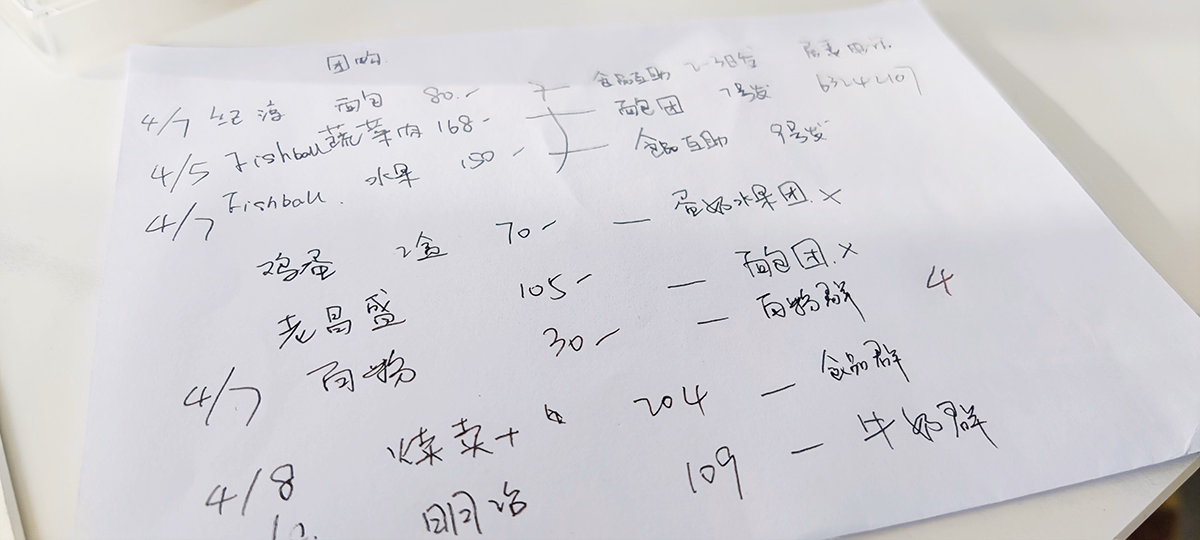 团购
4/7 红 淳 面包 80.- 食品互助 2-3日发 居委电话
4/5 Fishball 蔬菜肉 168- 面包团 7号发 63242107
4/7 Fishball. 水果 150- 食品互助 9号发
鸡蛋 2盒 70- — 蛋奶水果团. ×
老昌盛 105- — 面包团. ×
4/7 面粉 30- — 面粉群 4
4/8 菜+ 204 — 食品群
明治 109 — 牛奶群